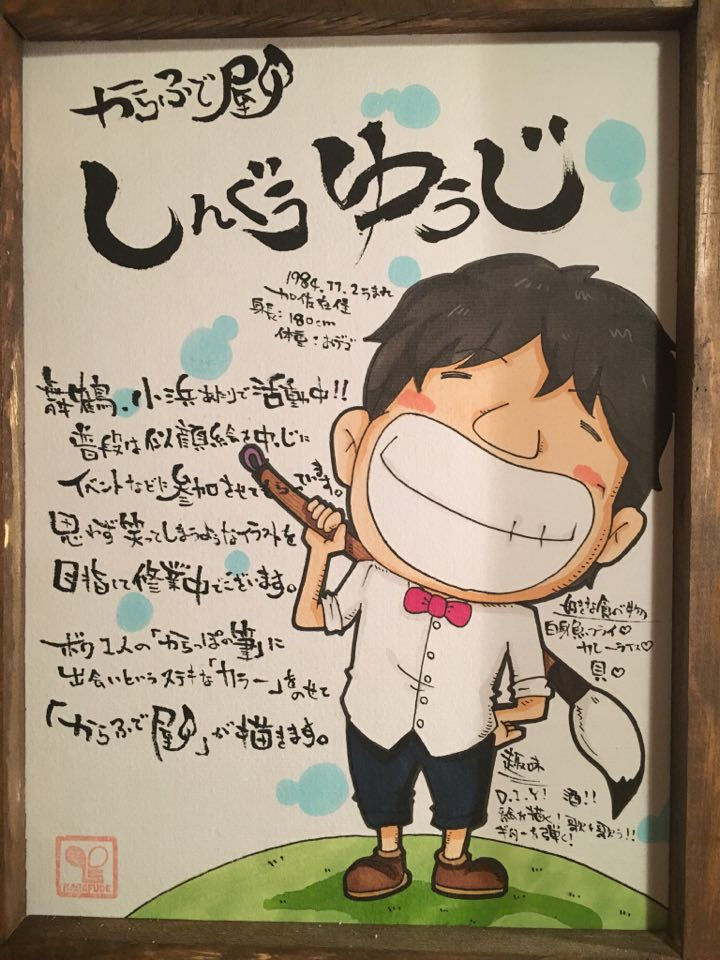 からふで屋
しんぐうゆうじ
1984.11.2うまれ
加佐在住
身長:180cm
体重:おデブ
舞鶴、小浜あたりで活動中!!
普段は似顔絵を中心に
イベントなどに参加させてもらってます。
思わず笑ってしまうようなイラストを
目指して修業中でございます。
ボク1人の「からっぽの筆」に
出会いというステキな「カラー」をのせて
「からふで屋」が描きます。
好きな食べ物
白身魚フライ♡
カレーライス♡
貝♡
趣味
D.I.Y! 酒!!
絵を描く! 歌を歌う!!
ギターを弾く!
KARAFUDE